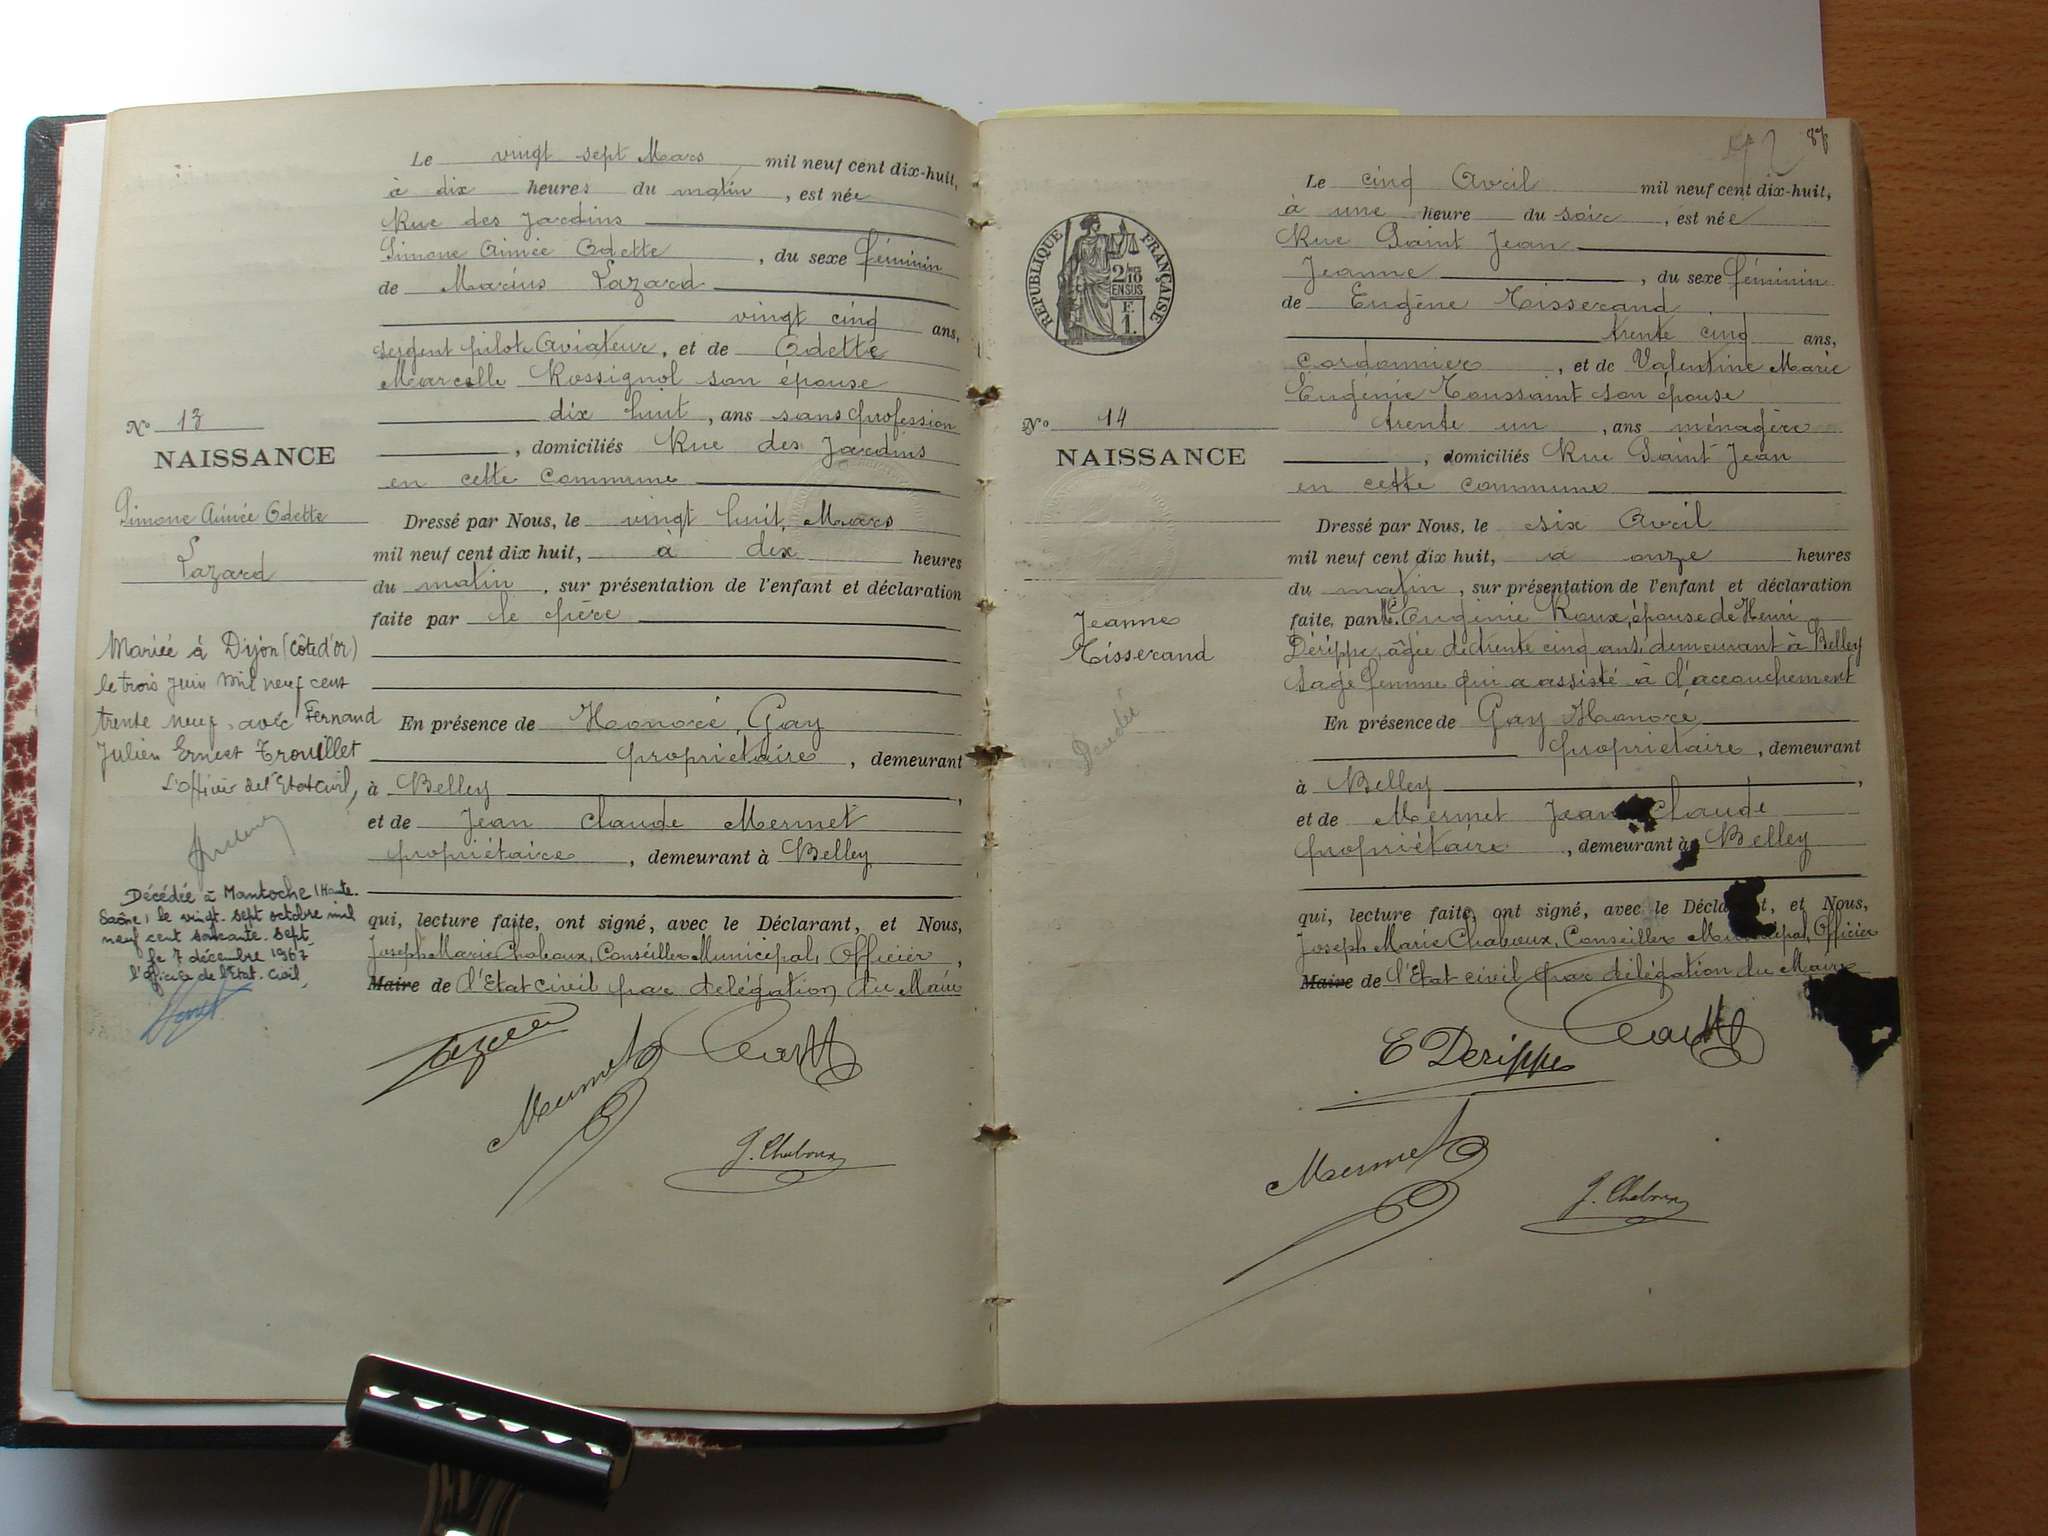 Le vingt sept Mars mil neuf cent dix-huit,
à dix heures du matin, est née
Rue des Jardins
Simone Aimée Odette, du sexe féminin
de Marius Lazard
vingt cinq ans,
sergent pilote Aviateur, et de Odette
Marcelle Rossignol son épouse
dix huit, ans sans profession
, domiciliés Rue des Jardins
en cette commune
Dressé par Nous, le vingt huit Mars
mil neuf cent dix huit, à dix heures
du matin, sur présentation de l'enfant et déclaration
faite par le père
En présence de Honoré Gay
propriétaire, demeurant
à Belley,
et de Jean Claude Mermet
propriétaire, demeurant à Belley
qui, lecture faite, ont signé, avec le Déclarant, et Nous,
Joseph Marie Chaboux, Conseiller Municipal, Officier,
Maire de l'Etat civil par délégation du Maire
Mermet
J. Chaboux
No 13
NAISSANCE
Simone Aimée Odette
Lazard
Mariée à Dijon (Côte d'or)
le trois Juin mil neuf cent
trente neuf, avec Fernand
Julien Ernest Trouillet
L'officier de l'Etat civil,
Décédée à Mantoche (Haute-
Saône) le vingt-sept octobre mil
neuf cent soixante-sept
le 7 décembre 1967
l'officier de l'Etat-Civil,
87
Le cinq Avril mil neuf cent dix-huit,
à une heure du soir, est née
Rue Saint Jean
Jeanne, du sexe féminin
de Eugène Tisserand
trente cinq ans,
cordonnier, et de Valentine Marie
Eugénie Toussaint son épouse
trente un, ans ménagère
, domiciliés Rue Saint Jean
en cette commune
Dressé par Nous, le six Avril
mil neuf cent dix huit, à onze heures
du matin, sur présentation de l'enfant et déclaration
faite, par Eugénie Roux, épouse de Henri
Dérippe, âgée de trente cinq ans, demeurant à Belley
sage femme qui a assisté à l'accouchement
En présence de Gay Honoré
propriétaire, demeurant
à Belley,
et de Mermet Jean Claude
propriétaire, demeurant à Belley
qui, lecture faite, ont signé, avec le Déclarant, et Nous,
Joseph Marie Chaboux, Conseiller Municipal, Officier
Maire de l'Etat civil par délégation du Maire
E Derippe
Mermet
J. Chaboux
REPUBLIQUE FRANÇAISE
2/10
EN SUS
F.
1.
No 14
NAISSANCE
Jeanne
Tisserand